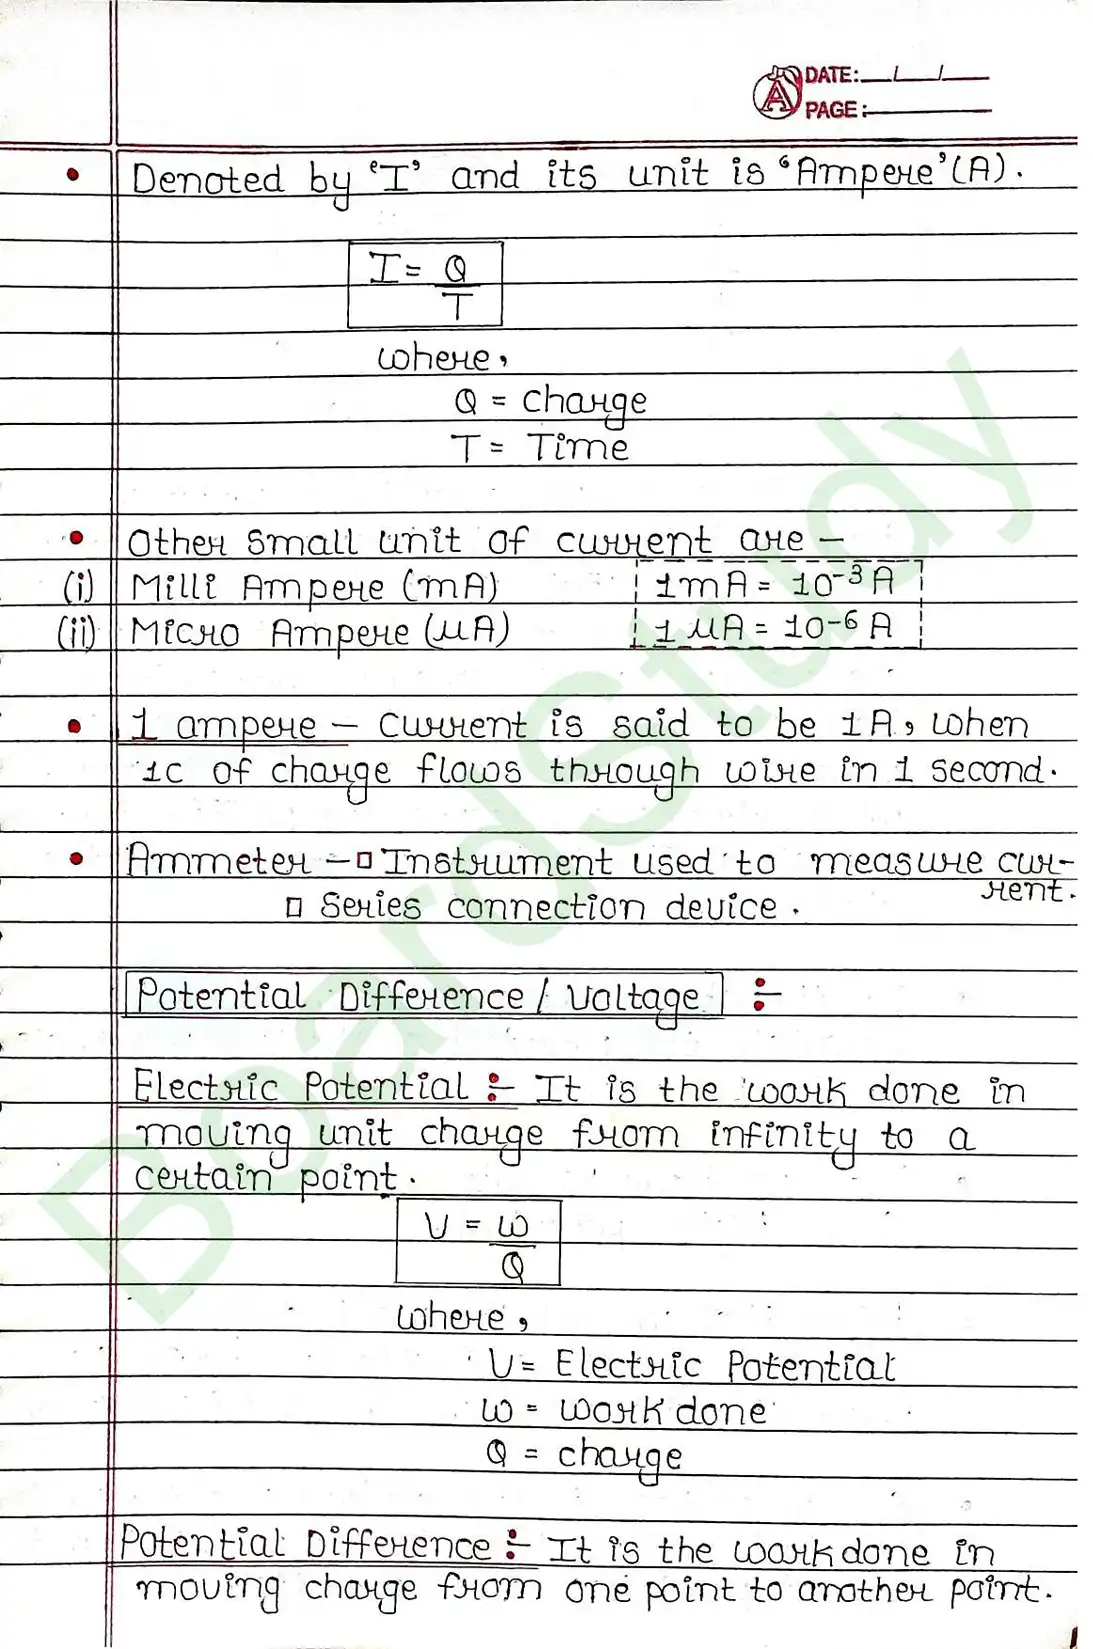 DATE: / /
PAGE:
• Denoted by 'I' and its unit is 'Ampere' (A).
I = Q/T
where,
Q = charge
T = Time
• Other small unit of current are –
(i) Milli Ampere (mA) 1mA = 10⁻³A
(ii) Micro Ampere (μA) 1 μA = 10⁻⁶ A
• 1 ampere – current is said to be 1A, when
1C of charge flows through wire in 1 second.
• Ammeter – □ Instrument used to measure cur-
rent.
□ Series connection device.
Potential Difference / Voltage :-
Electric Potential :- It is the work done in
moving unit charge from infinity to a
certain point.
V = W/Q
where,
V = Electric Potential
W = work done
Q = charge
Potential Difference :- It is the work done in
moving charge from one point to another point.
BoardStudy